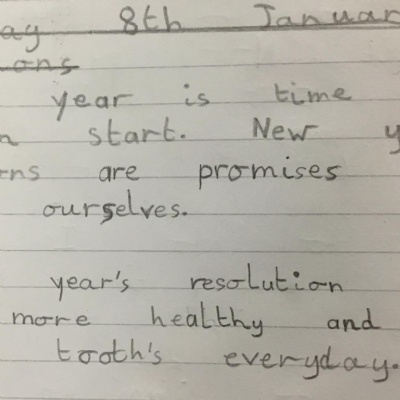 ay 8th Januar
ons
year is time
n start. New y
ns are promises
ourselves.
year's resolution
more healthy and
tooth's everyday.